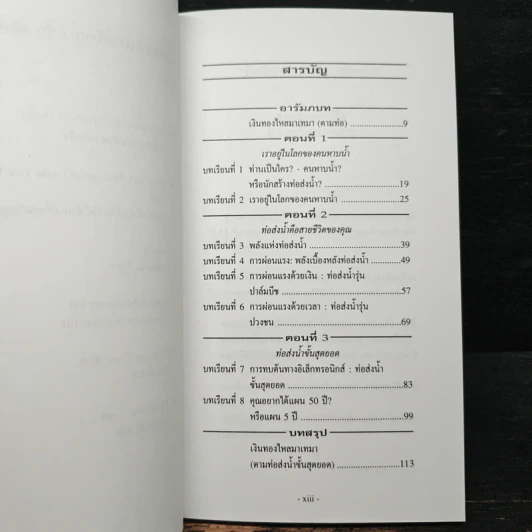 สารบัญ
อารัมภบท
เงินทองไหลมาเทมา (ตามท่อ) ..................9
ตอนที่ 1
เราอยู่ในโลกของคนหาบน้ำ
บทเรียนที่ 1 ท่านเป็นใคร? - คนหาบน้ำ?
หรือนักสร้างท่อส่งน้ำ? ...................19
บทเรียนที่ 2 เราอยู่ในโลกของคนหาบน้ำ ..............25
ตอนที่ 2
ท่อส่งน้ำคือสายชีวิตของคุณ
บทเรียนที่ 3 พลังแห่งท่อส่งน้ำ ............................39
บทเรียนที่ 4 การผ่อนแรง: พลังเบื้องหลังท่อส่งน้ำ ......49
บทเรียนที่ 5 การผ่อนแรงด้วยเงิน : ท่อส่งน้ำรุ่น
ปาล์มบีช .......................................57
บทเรียนที่ 6 การผ่อนแรงด้วยเวลา : ท่อส่งน้ำรุ่น
ปวงชน ..........................................69
ตอนที่ 3
ท่อส่งน้ำขั้นสุดยอด
บทเรียนที่ 7 การทบต้นทางอิเล็กทรอนิกส์ : ท่อส่งน้ำ
ขั้นสุดยอด .....................................83
บทเรียนที่ 8 คุณอยากได้แผน 50 ปี?
หรือแผน 5 ปี ................................99
บทสรุป
เงินทองไหลมาเทมา
(ตามท่อส่งน้ำขั้นสุดยอด) ...................113
- xiii -